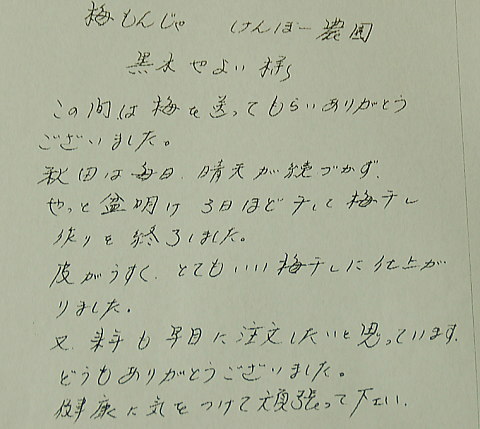 梅もんじゃ けんぼー農園
黒木やよい様
この間は梅を送ってもらいありがとう
ございました。
秋田は毎日、晴天が続づかず、
やっと盆明け3日ほど干して梅干し
作りを終了しました。
皮がうすく、とてもいい梅干しに仕上が
りました。
又、来年も早目に注文したいと思っています。
どうもありがとうございました。
健康に気をつけて頑張って下さい。